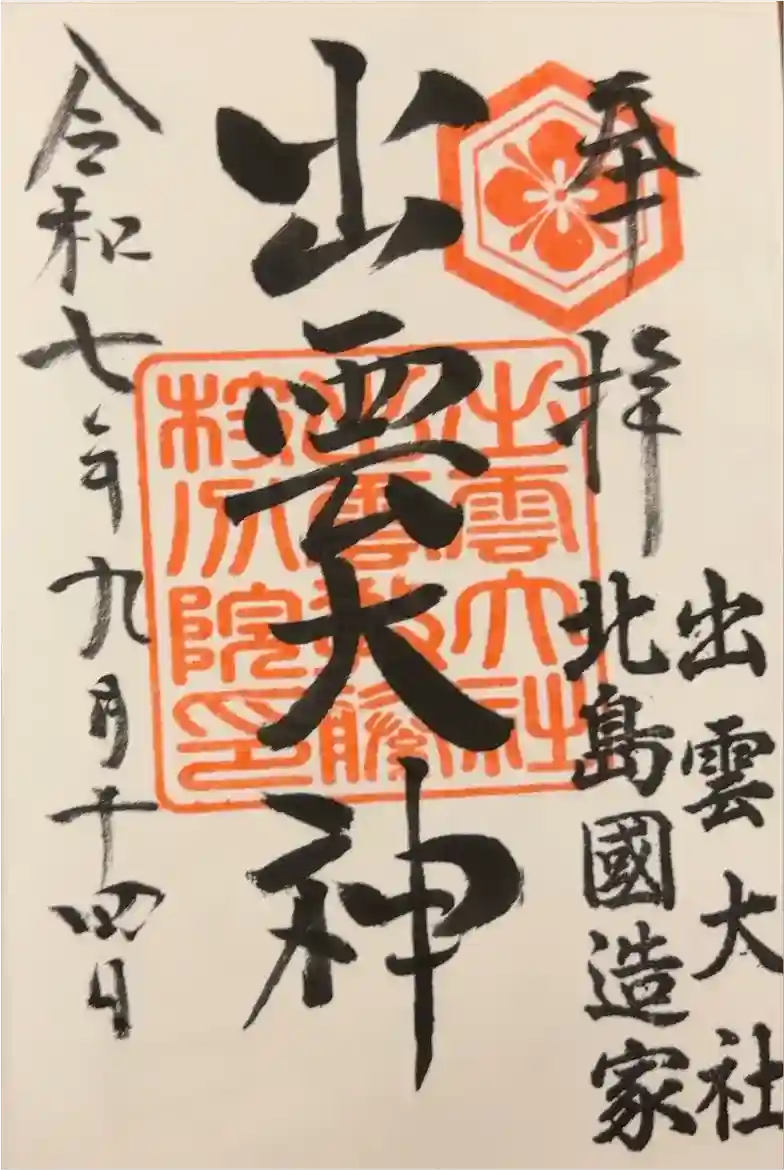 奉拝
出雲大社
北島國造家
出雲大神
出雲大社
出雲教藤
枝分院印
令和七年九月十四日